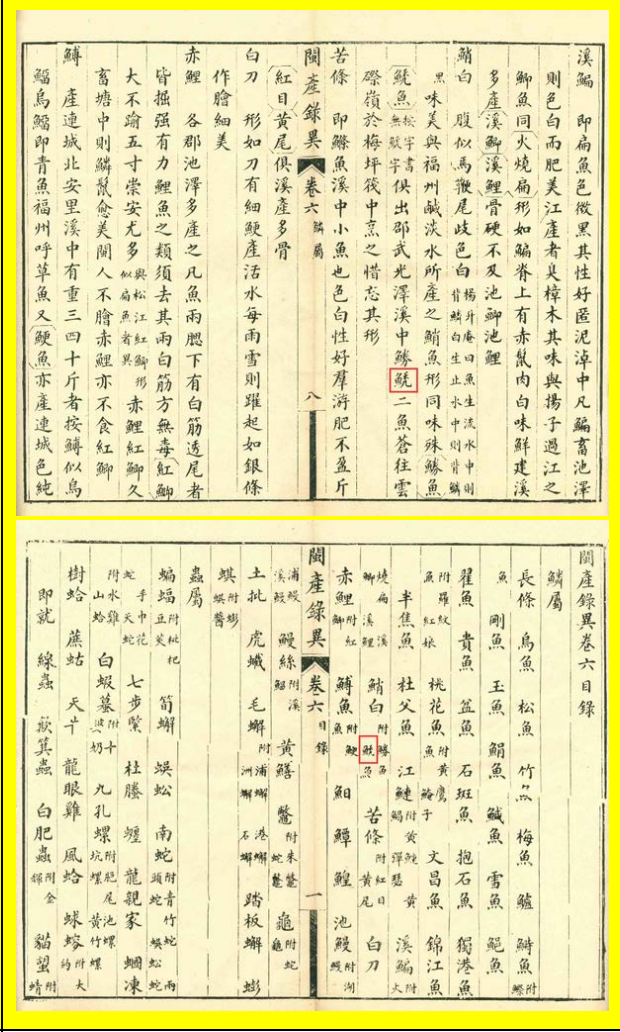 溪鯿　即扁魚色微黑其性好匿泥淖中凡鯿畜池澤
則色白而肥美江產者臭樟木其味與揚子過江之
鯽魚同火燒扁形如鯿脊上有赤鬣肉白味鮮建溪
多產溪鯽溪鯉骨硬不及池鯽池鯉
鮹白　腹似馬鞭尾歧色白楊升庵曰魚生流水中則背鱗白生止水中則背鱗黑
味美與福州鹹淡水所產之鮹魚形同味殊鰧魚
松字書無鯎字俱出邵武光澤溪中鰧二魚蒼往雲
磜嶺於梅坪筏中烹之惜忘其形
苦條　即鰷魚溪中小魚也色白性好羣游肥不盈斤
紅目黃尾俱溪產多骨
閩產錄異　卷六　鱗屬　八
白刀　形如刀有細鯁產活水每雨雪則躍起如銀條
作膾細美
赤鯉　各郡池澤多產之凡魚兩腮下有白筋透尾者
皆掘强有力鯉魚之類須去其兩白筋方無毒紅鯽
大不踰五寸崇安尤多與松江紅鯽形似扁魚者異赤鯉紅鯽久
畜塘中則鱗鬣愈美閩人不膾赤鯉亦不食紅鯽
鱄　產連城北安里溪中有重三四十斤者按鱄似烏
鰡烏鰡即青魚福州呼草魚又鯁魚亦產連城色純
閩產錄異卷六目錄
鱗屬
長條　烏魚　松魚　竹魚　梅魚　鱸　鰣魚附鰶魚
剛魚　玉魚　鯃魚　鰔魚　雪魚　鮑魚
翟魚　貴魚　盆魚　石斑魚　抱石魚　獨港魚
附羅紋魚紅娘　桃花魚附黃魚　鷹　子　文昌魚　錦江魚
半焦魚　杜父魚　江鰱　溪鯿附火燒扁溪鯽溪鯉
鮹白附鰧魚魚　苦條附紅目黃尾　白刀
赤鯉附紅鯽　鱄魚附鯁魚　鮂　鱏　鰉　池鰻附湖鰻
閩產錄異　卷六　目錄　一
浦鰻溪鰻　鰻絲附溪　黃鱔　鼈附朱鼈蛇鼈　龜附蛇龜
土批　虎蠘　毛蠏附浦蠏港蠏洲蠏石蠏　踏板蠏　蟛
蜞附蟛蜞醬
蟲屬
蝙蝠附枇杷豆莢　筍蠏　蜈蚣　南蛇附青竹蛇兩頭蛇蜈蚣蛇
手巾花蛇天蛇　七步緊　杜　纏　龍親家　蟈凍
附水雞山蛤　白蝦蟇附十奶　九孔螺附脫尾池螺坑螺黃竹螺
樹蛤　蔗蛄　天牛　龍眼雞　風蛤　蛷螋附大
即就　線蟲　簸箕蟲　白肥蟲附金　貓望附蜻